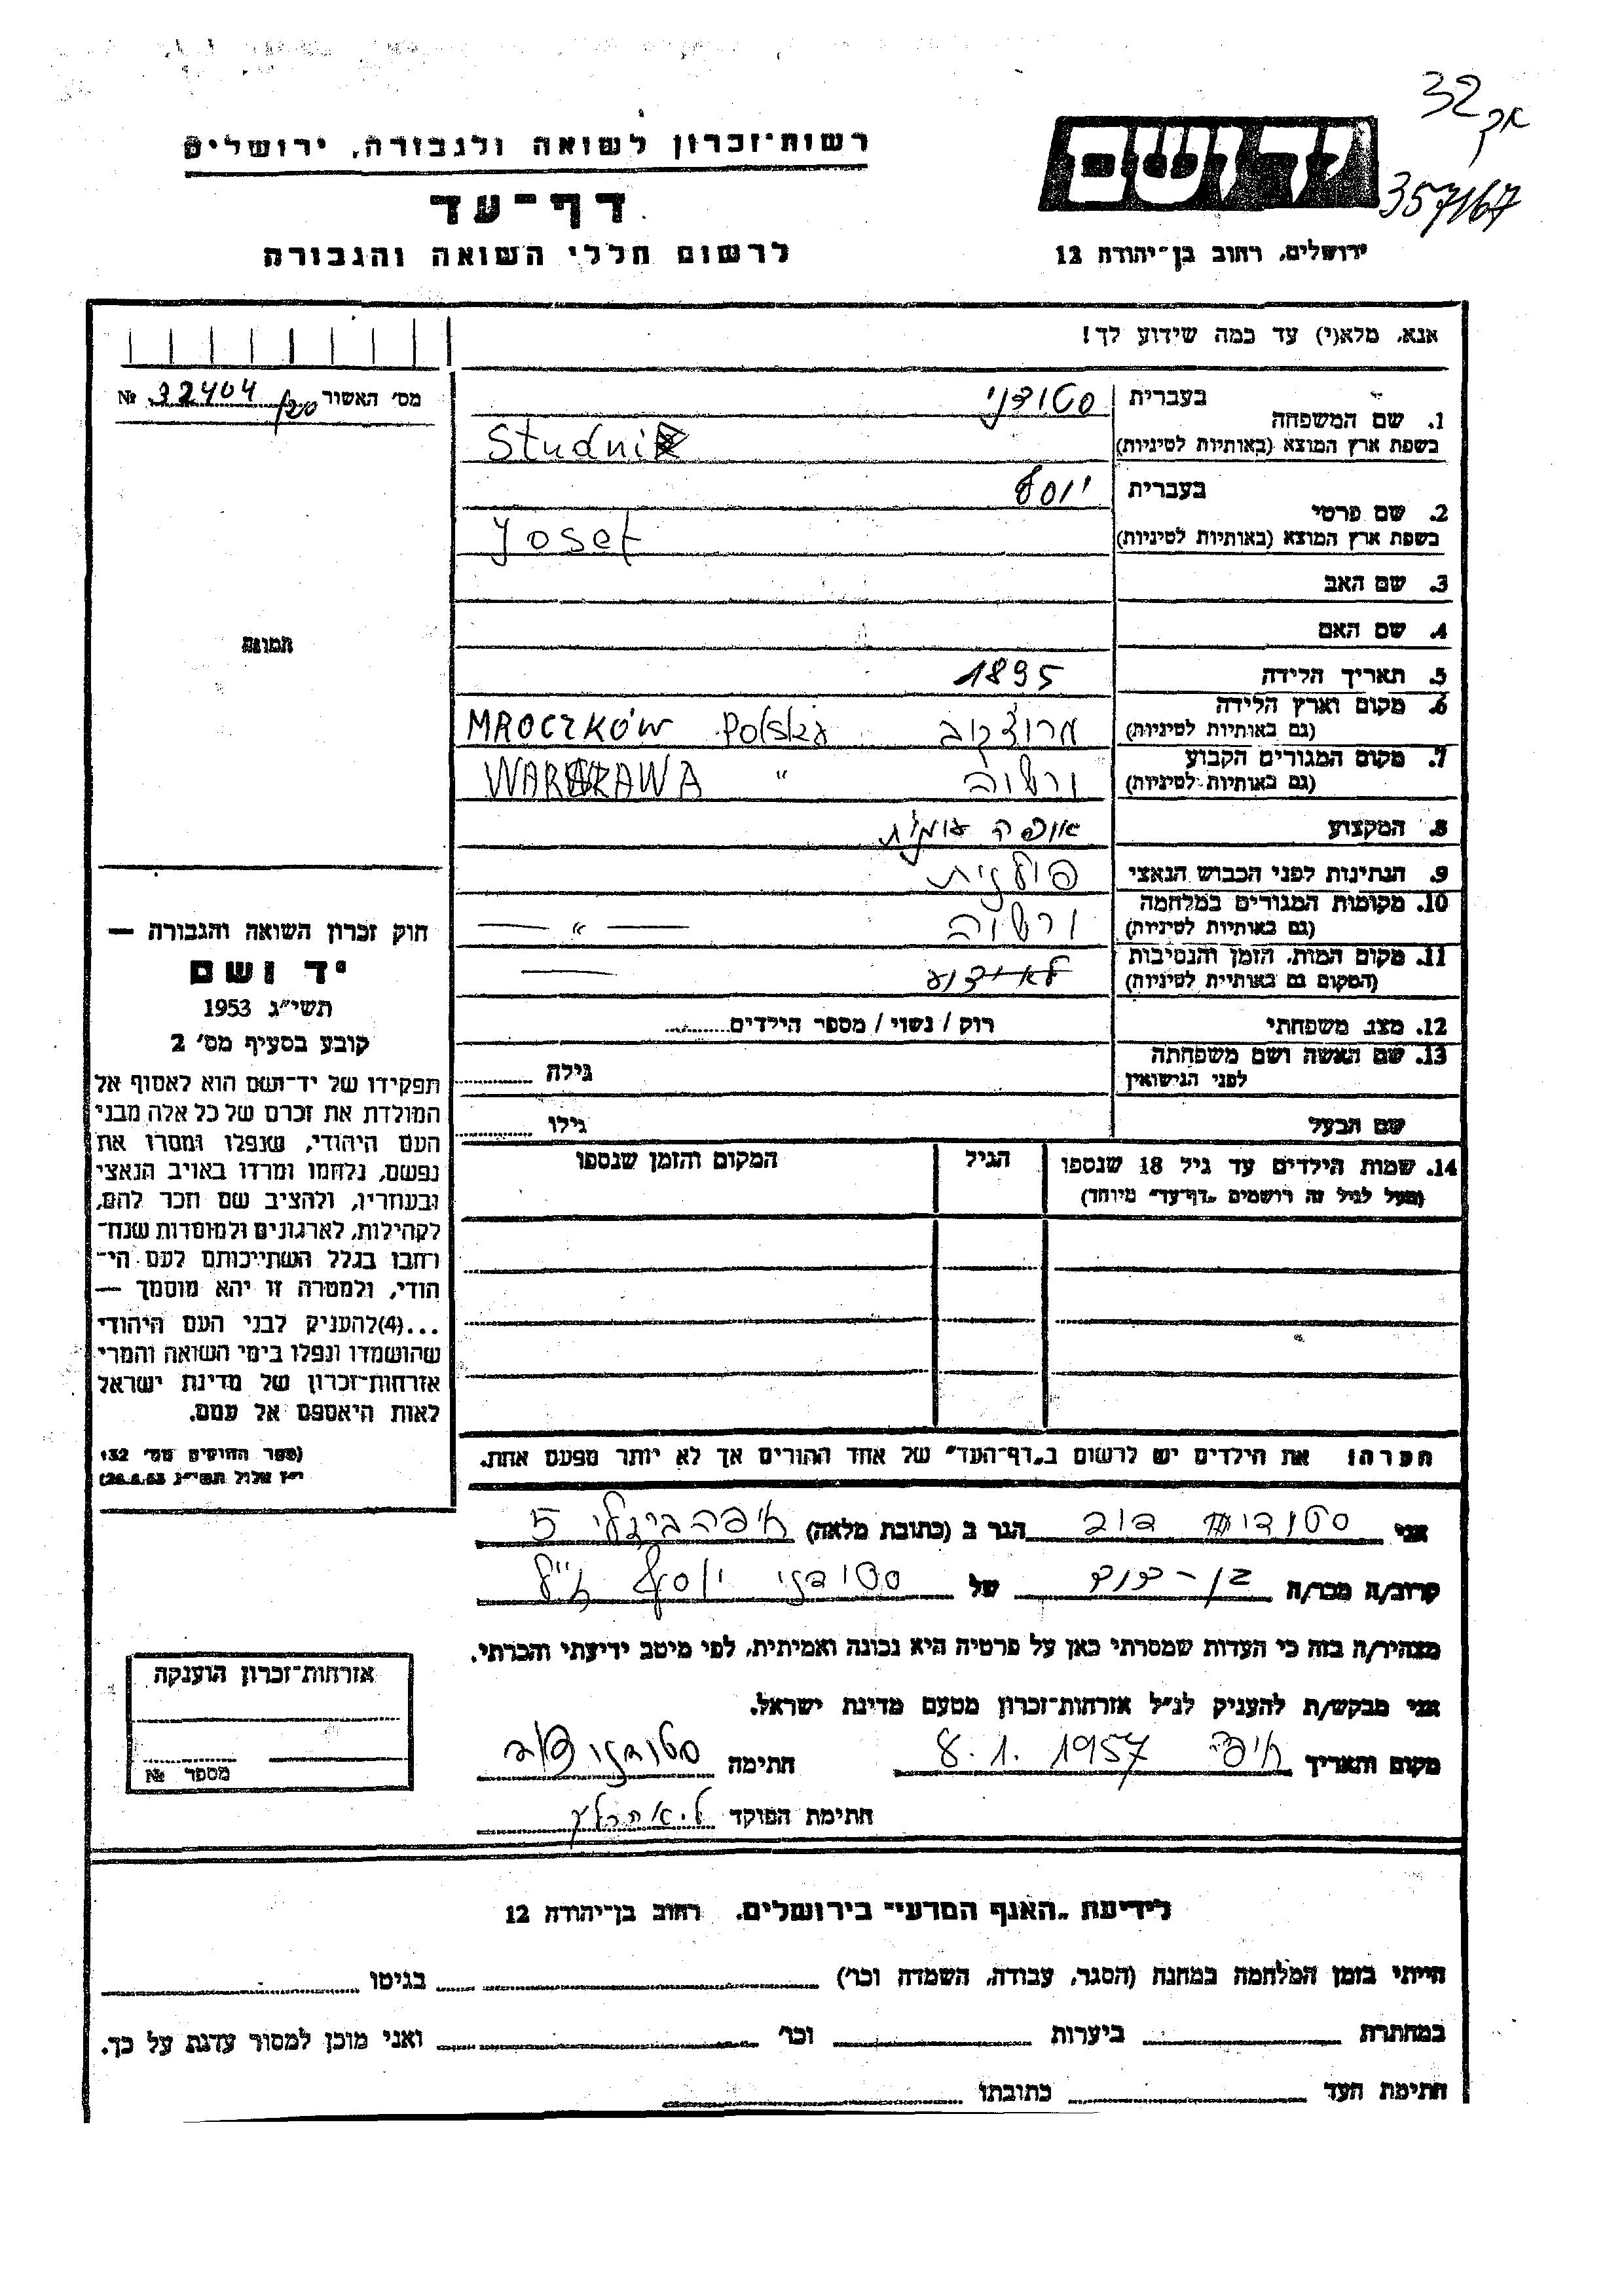 32
אק
357167
יד ושם
ירושלים, רחוב בן־יהודה 12
רשות־זכרון לשואה ולגבורה, ירושלים
דף־עד
לרשום חללי השואה והגבורה
אנא, מלא(י) עד כמה שידוע לך!
מס׳ האשור № 32404/20
1. שם המשפחה בעברית סטודני
בשפת ארץ המוצא (באותיות לטיניות) Studni
2. שם פרטי בעברית יוסף
בשפת ארץ המוצא (באותיות לטיניות) Josef
3. שם האב
4. שם האם
5. תאריך הלידה 1895
6. מקום וארץ הלידה
(גם באותיות לטיניות) מרוצקוב MROCZKÓW Polska
7. מקום המגורים הקבוע
(גם באותיות לטיניות) ורשה WARSZAWA "
8. המקצוע אופה
9. הנתינות לפני הכבוש הנאצי פולנית
10. מקומות המגורים במלחמה
(גם באותיות לטיניות) ורשה — " —
11. מקום המות, הזמן והנסיבות
(המקום גם באותיות לטיניות) לא ידוע —
12. מצב משפחתי רוק / נשוי / מספר הילדים
13. שם האשה ושם משפחתה
לפני הנישואין גילה
שם הבעל גילו
14. שמות הילדים עד גיל 18 שנספו הגיל המקום והזמן שנספו
(מעל לגיל זה רושמים „דף־עד״ מיוחד)
הערה: את הילדים יש לרשום ב„דף־העד״ של אחד ההורים אך לא יותר מפעם אחת.
תמונה
חוק זכרון השואה והגבורה —
יד ושם
תשי״ג 1953
קובע בסעיף מס׳ 2
תפקידו של יד־ושם הוא לאסוף אל
המולדת את זכרם של כל אלה מבני
העם היהודי, שנפלו ומסרו את
נפשם, נלחמו ומרדו באויב הנאצי
ובעוזריו, ולהציב שם וזכר להם,
לקהילות, לארגונים ולמוסדות שנח־
רבו בגלל השתייכותם לעם הי־
הודי, ולמטרה זו יהא מוסמך —
...(4)להעניק לבני העם היהודי
שהושמדו ונפלו בימי השואה והמרי
אזרחות־זכרון של מדינת ישראל
לאות היאספם אל עמם.
(ספר החוקים מס׳ 132
י״ז אלול תשי״ג 28.8.53)
אני סטודני דוב הגר ב (כתובת מלאה) חיפה 5
קרוב/ה מכר/ה בן-דוד של סטודני יוסף ז״ל
מצהיר/ה בזה כי העדות שמסרתי כאן על פרטיה היא נכונה ואמיתית, לפי מיטב ידיעתי והכרתי.
אני מבקש/ת להעניק לנ״ל אזרחות־זכרון מטעם מדינת ישראל.
מקום ותאריך חיפה 8.1.1957 חתימה סטודני דוב
חתימת הפוקד
אזרחות־זכרון הוענקה
מספר №
לידיעת „האגף המדעי״ בירושלים, רחוב בן־יהודה 12
הייתי בזמן המלחמה במחנה (הסגר, עבודה, השמדה וכו׳) בגיטו
במחתרת ביערות וכו׳ ואני מוכן למסור עדות על כך.
חתימת העד כתובתו